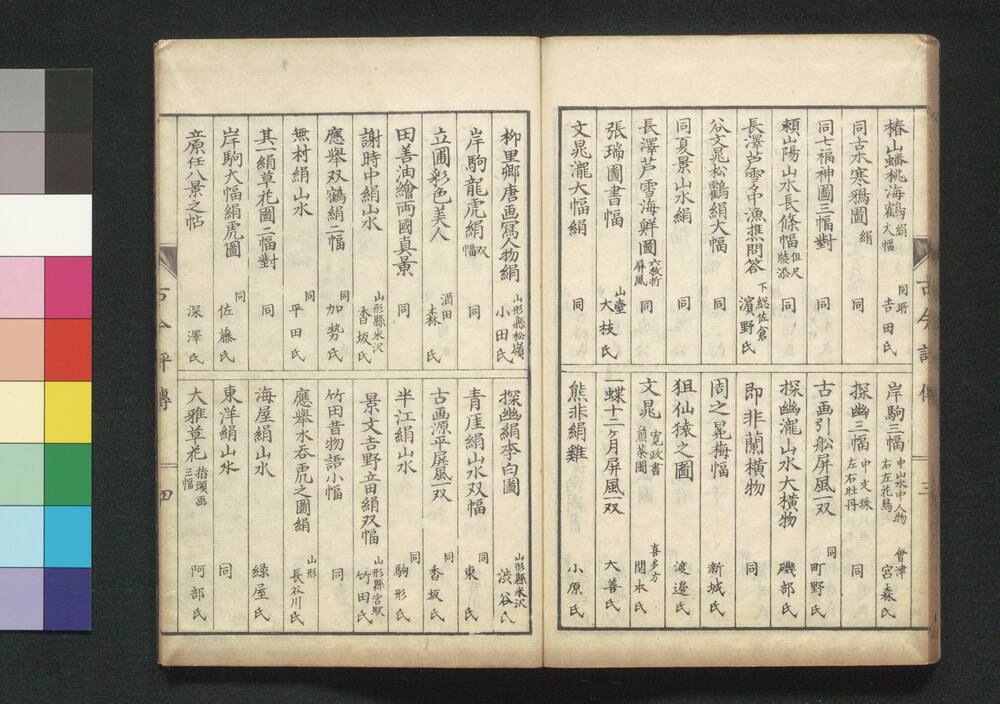 椿山蟠桃海鶴 鶴絹大幅 同所 吉田氏
同古木寒鴉圖 絹 同
同七福神圖三幅對 同
頼山陽山水長條幅 同
長澤芦雪雪中漁樵問答 下総佐倉 濱野氏
谷文晁松鶴絹大幅 同
同夏景山水絹 同
長澤芦雪海鮮圖 六枚折屏風 同
張瑞圖書幅 山臺 大枝氏
文晁瀧大幅絹 同
岸駒三幅 中山水中人物右左花鳥 會津 宮森氏
探幽三幅 中文珠左右牡丹 同
古画引舩屏風一双 同 町野氏
探幽瀧山水大横物 磯部氏
即非蘭横物 同
周之冕梅幅 新城氏
狙仙猿之圖 渡邉氏
文晁 寛政書 煎茶圖 喜多方 関本氏
一蝶十二ヶ月屏風一双 大善氏
熊非絹雞 小原氏
古今評傳 三
柳里郷唐画寫人物絹 山形縣松嶺 小田氏
岸駒龍虎絹 双幅 同
立圃彩色美人 酒田 森氏
田善油繪両國真景 同
謝時中絹山水 山形縣米沢 香坂氏
應舉双鶴絹二幅 同 加勢氏
無村絹山水 同 平田氏
其一絹草花圖二幅對 同
岸駒大幅絹虎圖 同 佐藤氏
意原任八景之帖 深澤氏
探幽絹李白圖 山形縣米沢 渋谷氏
青厓絹山水双幅 同 東氏
古画源平屏風一双 同 香坂氏
半江絹山水 同 駒形氏
景文吉野立田絹双幅 山形縣宮駅 竹田氏
竹田昔物語小幅 同
應舉水呑虎之圖絹 山形 長谷川氏
海屋絹山水 緑屋氏
東洋絹山水 同
大雅草花 指頭画三幅 阿部氏
古今評傳 四